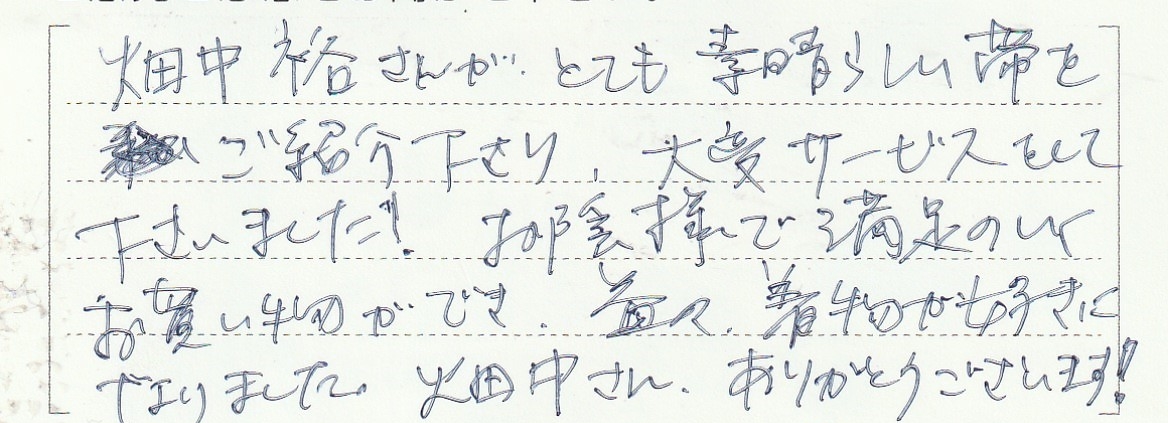 畑中 裕さんが とても 素晴らしい 帯を
ご紹介下さり、大変サービスをして
下さいました!! お陰様で満足のいく
お買い物ができ、益々、着物が好きに
なりました。畑中さん、ありがとうございます!